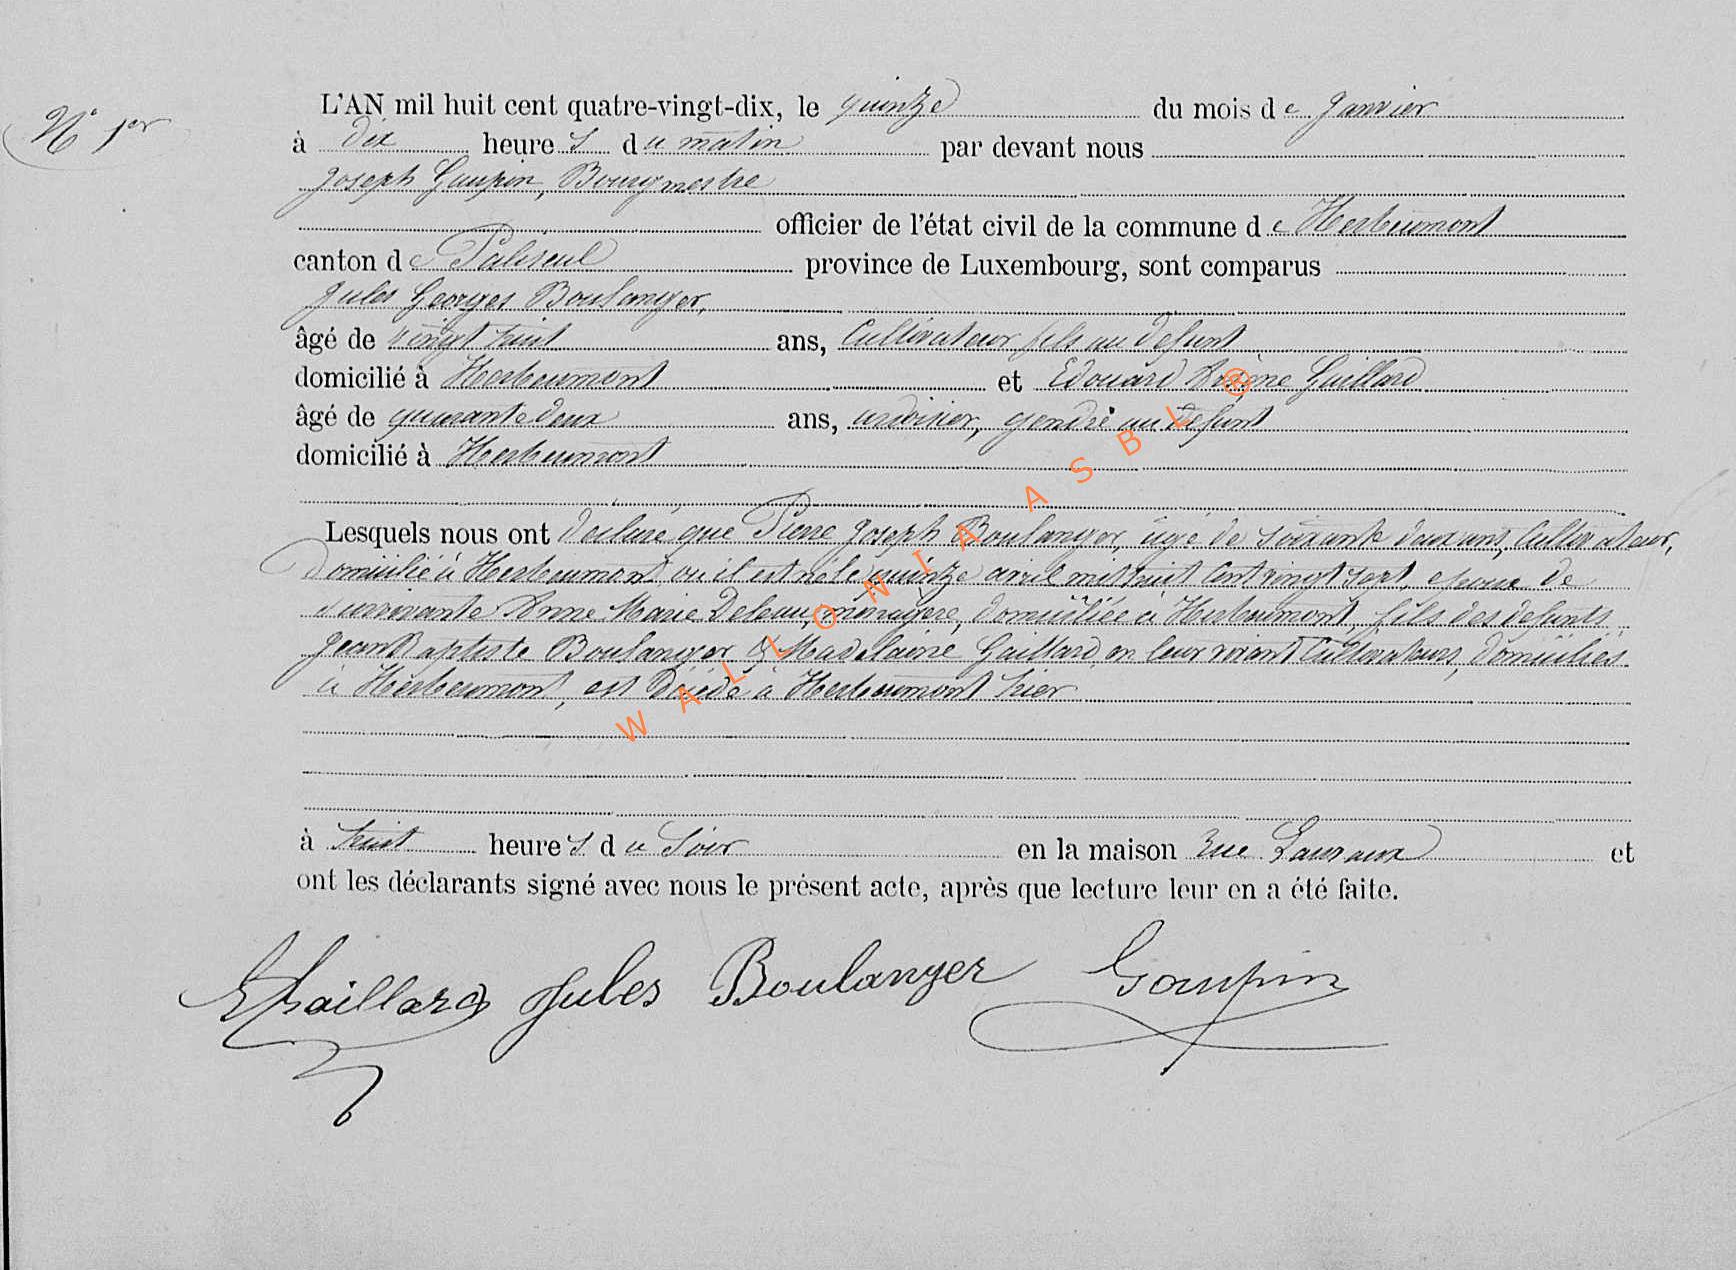 N° 1er
L'AN mil huit cent quatre-vingt-dix, le quinze du mois de Janvier
à dix heures du matin par devant nous
Joseph Gaupin, Bourgmestre
officier de l'état civil de la commune de Herbeumont
canton de Paliseul province de Luxembourg, sont comparus
Jules Georges Boulanger,
âgé de vingt huit ans, Cultivateur fils au défunt
domicilié à Herbeumont et Edouard Gaillard
âgé de quarante deux ans, ardoisier, gendre au défunt
domicilié à Herbeumont
Lesquels nous ont déclaré que Pierre Joseph Boulanger, âgé de soixante deux ans, Cultivateur,
domicilié à Herbeumont où il est né le quinze avril mil huit cent vingt sept, époux de
survivante Anne Marie Deleau, ménagère, domiciliée à Herbeumont, fils des défunts
Jean Baptiste Boulanger & Madelaine Gaillard en leur vivant Cultivateurs, domiciliés
à Herbeumont, est décédé à Herbeumont hier
à huit heures du Soir en la maison rue et
ont les déclarants signé avec nous le présent acte, après que lecture leur en a été faite.
EGaillard Jules Boulanger Gaupin
WALLONIA ASBL ®